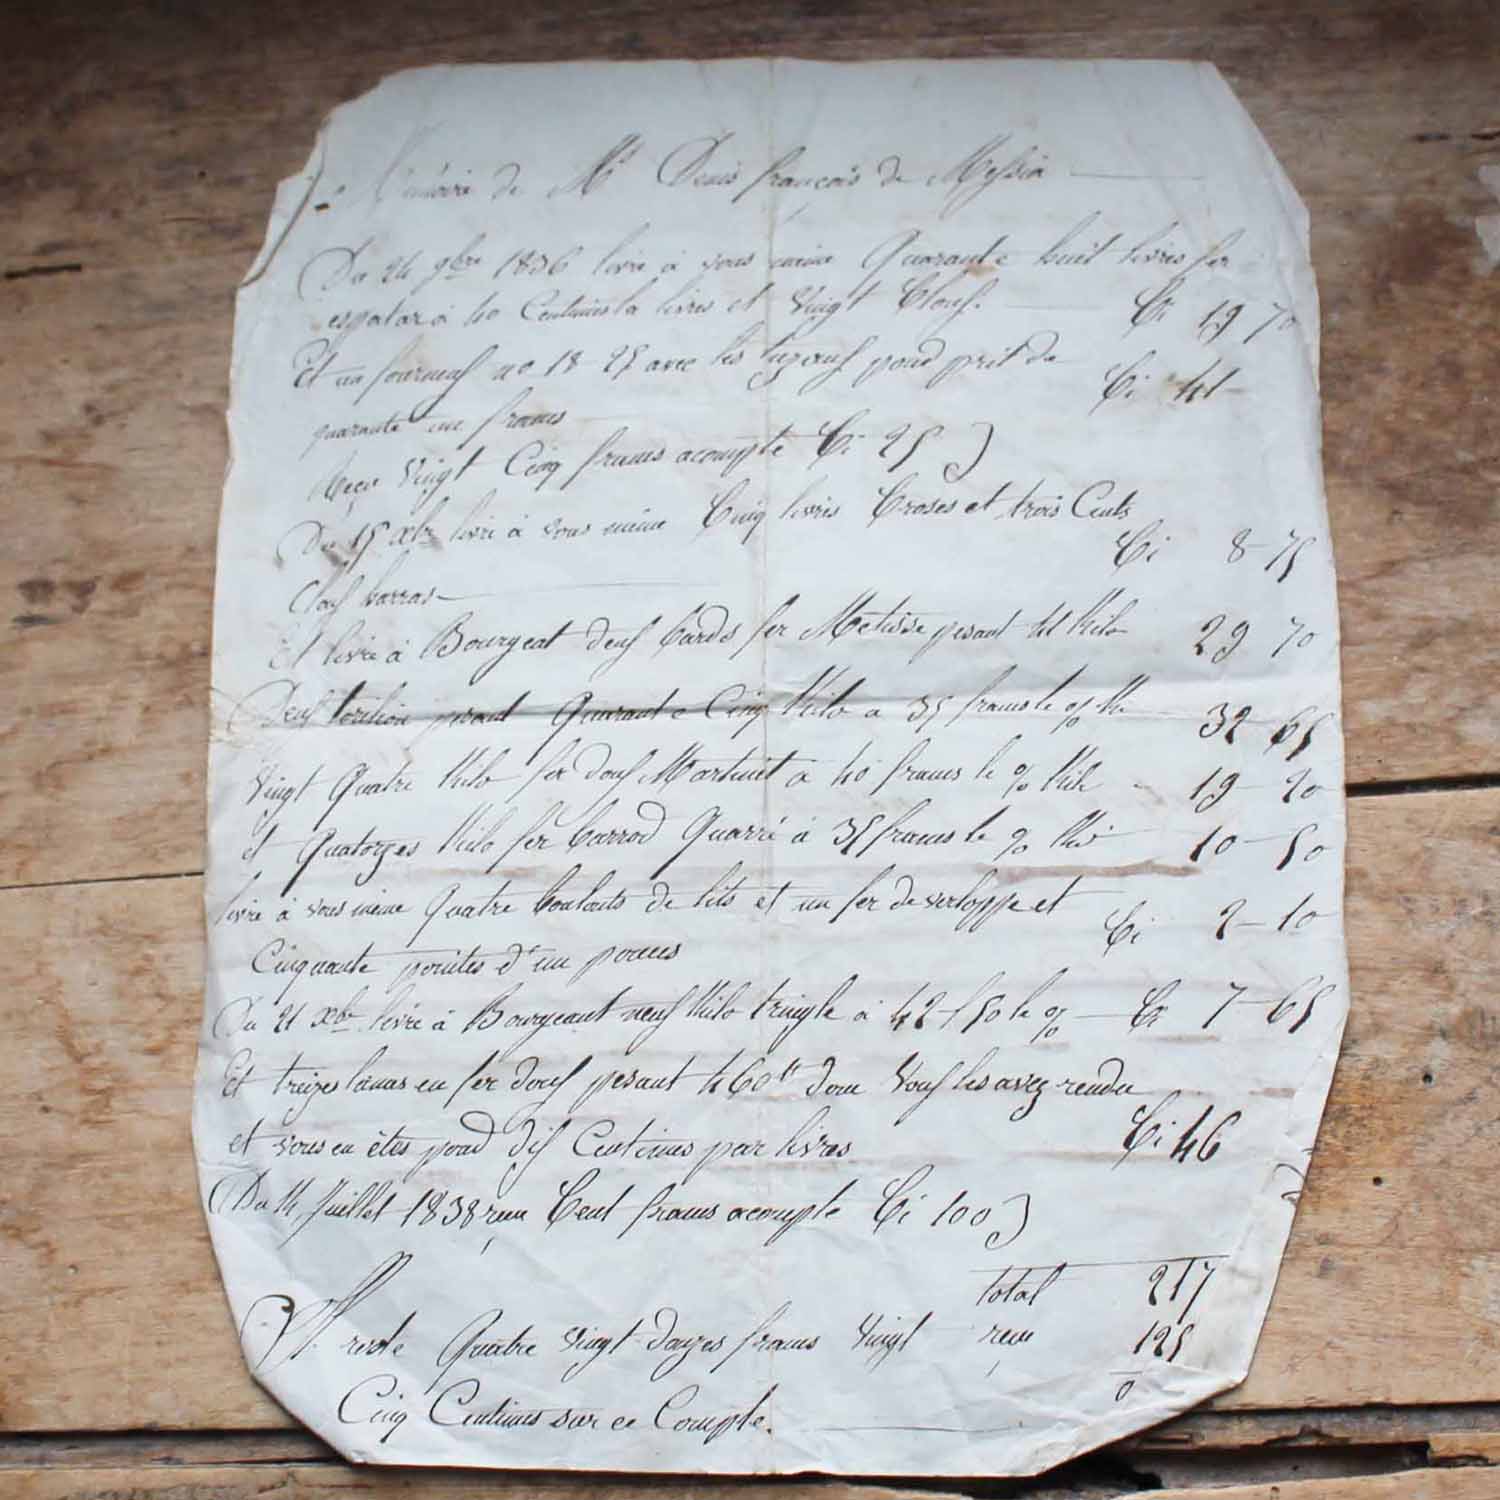 Mémoire de Mr Denis français de Messia
Du 24 9bre 1836 livré à vous même Quarante huit livres fer
espatar à 40 Centimes la livres et Vingt Clous. Ci 19 70
Et un fourneuf no 18-25 avec les pour prit de
quarante un francs Ci 41-
Reçu Vingt Cinq francs acompte Ci 25
Du 15 Xbr livré à vous même Cinq livres Croses et trois Cents
Clouf barras Ci 8-75
Et livré à Bourgeat deuf bards fer Metisse pesant 41 Kilo 29 70
Deuf pesant Quarante Cinq Kilo a 35 francs le % K. 32-65
Vingt Quatre Kilo fer douf Martinet à 40 francs le % Kilo 19-20
et Quatorzes Kilo fer barrod Quarré à 35 francs le % Kilo 10-50
livré à vous même Quatre boulouts de lits et un fer de verloppe et
Cinquante pointes d'un pouces Ci 2-10
Du 21 Xbr livré à Bourgeaut neuf Kilo tringle à 42-f50 le % Ci 7-65
Et treizes lamas en fer douf pesant 460 tt donc Vouf les avez rendu
et vous en êtes pour dif Centimes par livres Ci 46
Du 14 Juillet 1838 reçu Cent francs acompte Ci 100
total 217
Il reste Quatre Vingt douzes francs Vingt reçu 125
0
Cinq Centimes sur ce Compte.